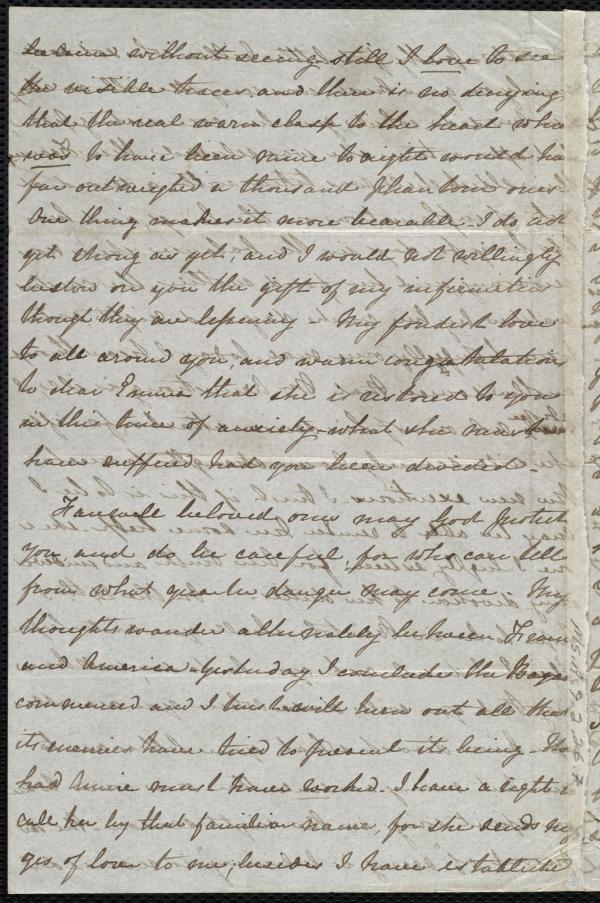 believe without seeing still I love to see
the visible traces, and there is no denying
that the real warm clasp to the heart wh
was to have been mine tonight would ha
far outweighed a thousand phantom ones
One thing makes it more bearable - I do not
get strong as yet, and I would not willingly
bestow on you the gift of my infirmities
though they are lessening - My fondest love
to all around you, and warm congratulation
to dear Emma that she is restored to you
in this time of anxiety - what she must
have suffered had you been divided -
Farewell beloved ones may God protect
you and do be careful, for who can tell
from what quarter danger may come. My
thoughts wander alternately between France
and America - Yesterday I conclude the Bazaar
commenced and I trust will turn out all that
its enemies have tried to prevent its being. Ho
hard Annie must have worked. I have a right
call her by that familiar name, for she sends
ges of love to me, besides I have established
MS.A.9.2.26.